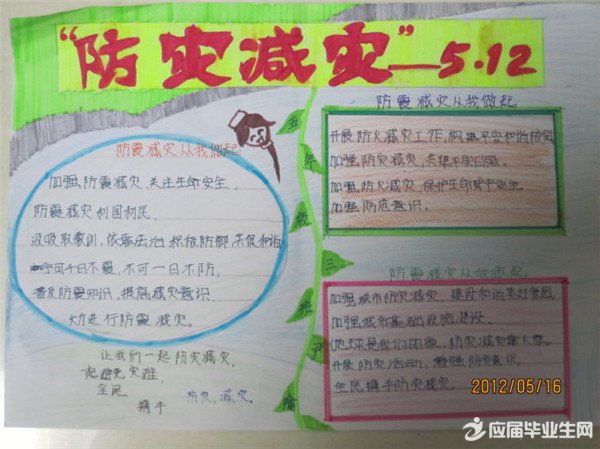 “防灾减灾”—5.12
防震减灾从我做起
加强防震减灾 关注生命安全，
防震减灾利国利民，
汲取教训，依靠法治 积极防御
宁可千日不震，不可一日不防，
普及防震知识，提高减灾意识，
大力进行防震减灾。
让我们一起防灾减灾
起避免灾难，
全民
携手
防灾，减灾，
五年级三班
防震减灾从我做起
开展防火减灾工作，构建平安和谐校园
加强防灾减灾，共建平安
加强防火减灾，保护生命安全。
加强防范意识。
防震减灾从我做起
加强城市防灾减灾，建设和谐美好家园
加强城市基础设施建设，
地球是我们的家，防灾减灾靠大家。
开展防灾活动，增强防灾意识。
全民携手防灾减灾。
2012/05/16
应届毕业生网